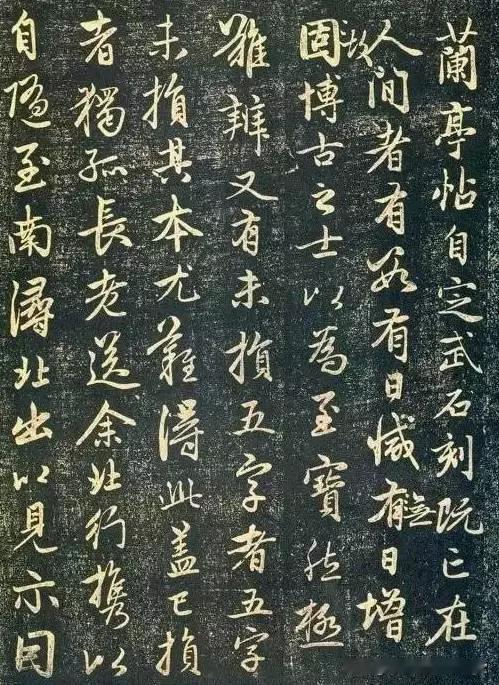 蘭亭帖自定武石刻既亡在
人間者有數有日減有無日增
故固博古之士以為至寶然極
難辨又有未損五字者五字
未損其本尤難得此蓋已損
者獨孤長老送余北行攜以
自隨至南潯北出以見示因